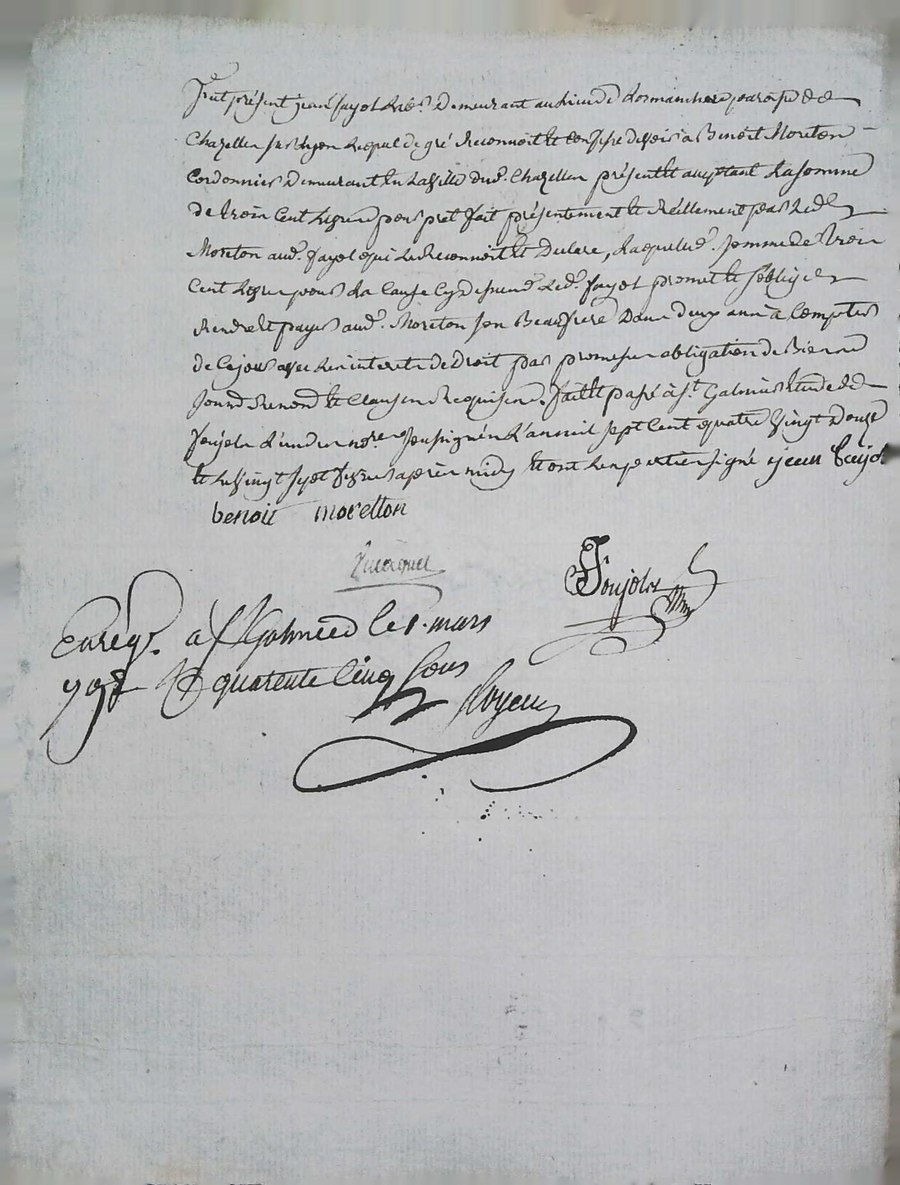 Fut présent jean fayol demeurant au lieu de parroisse de
Chazelles sur Lyon lequel de gré Reconnoit et Confesse devoir à Benoit Moreton
Cordonnier Demeurant en la Ville dud. Chazelles présent et acceptant La somme
de trois Cent Livres pour pret fait présentement et Réellement par Led.
Moreton aud. fayol qui Le Reconnoit et Declare, Laquelle d. somme de trois
Cent Livres pour La Cause Cy dessus Led. fayol promet et s'oblige
Rendre et payer aud. Moreton son Beaufrere Dans deux ans à Compter
de Ce jour avec Les interets de Droit par promesse obligation de Biens
Soumis Renonc. et Clauses Requises. fait et passé à St. Galmier Etude de
Foujols L'un des nores. soussignés L'an mil sept Cent quatre Vingt Douze
et Le Vingt sept fevrier après midy et ont Les parties signé jean fayol
benoit moretton
Foujols
Enregr. à St Galmier le 1. mars
1792 quarente Cinq sous